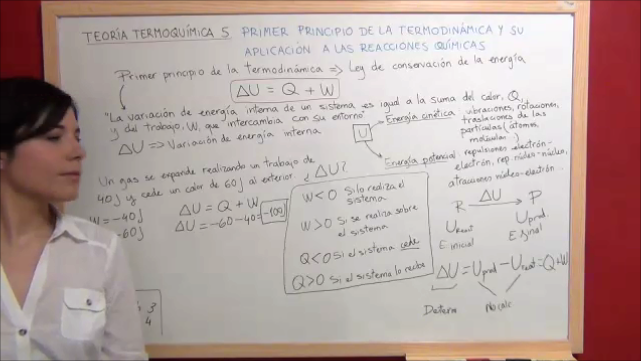 TEORÍA TERMOQUÍMICA 5 PRIMER PRINCIPIO DE LA TERMODINÁMICA Y SU
APLICACIÓN A LAS REACCIONES QUÍMICAS
Primer principio de la termodinámica => Ley de conservación de la energía
ΔU = Q + W
"La variación de energía interna de un sistema es igual a la suma del calor, Q,
y del trabajo, W, que intercambia con su entorno"
ΔU => Variación de energía interna
U
Energía cinética
vibraciones, rotaciones,
traslaciones de las
partículas (átomos,
moléculas..)
Energía potencial
repulsiones electrón-
electrón, rep. núcleo-núcleo,
atracciones núcleo-electrón.
Un gas se expande realizando un trabajo de
40J y cede un calor de 60J al exterior ¿ΔU?
W = -40J
-60J
ΔU = Q + W
ΔU = -60-40= -100J
W<0 Si lo realiza el
sistema
W>0 Si se realiza sobre
el sistema
Q<0 Si el sistema cede
Q>0 Si el sistema lo recibe
ΔU
R → P
Ureact Uprod.
E inicial E final
ΔU = Uprod - Ureact = Q+W
Determ No calc
3
4